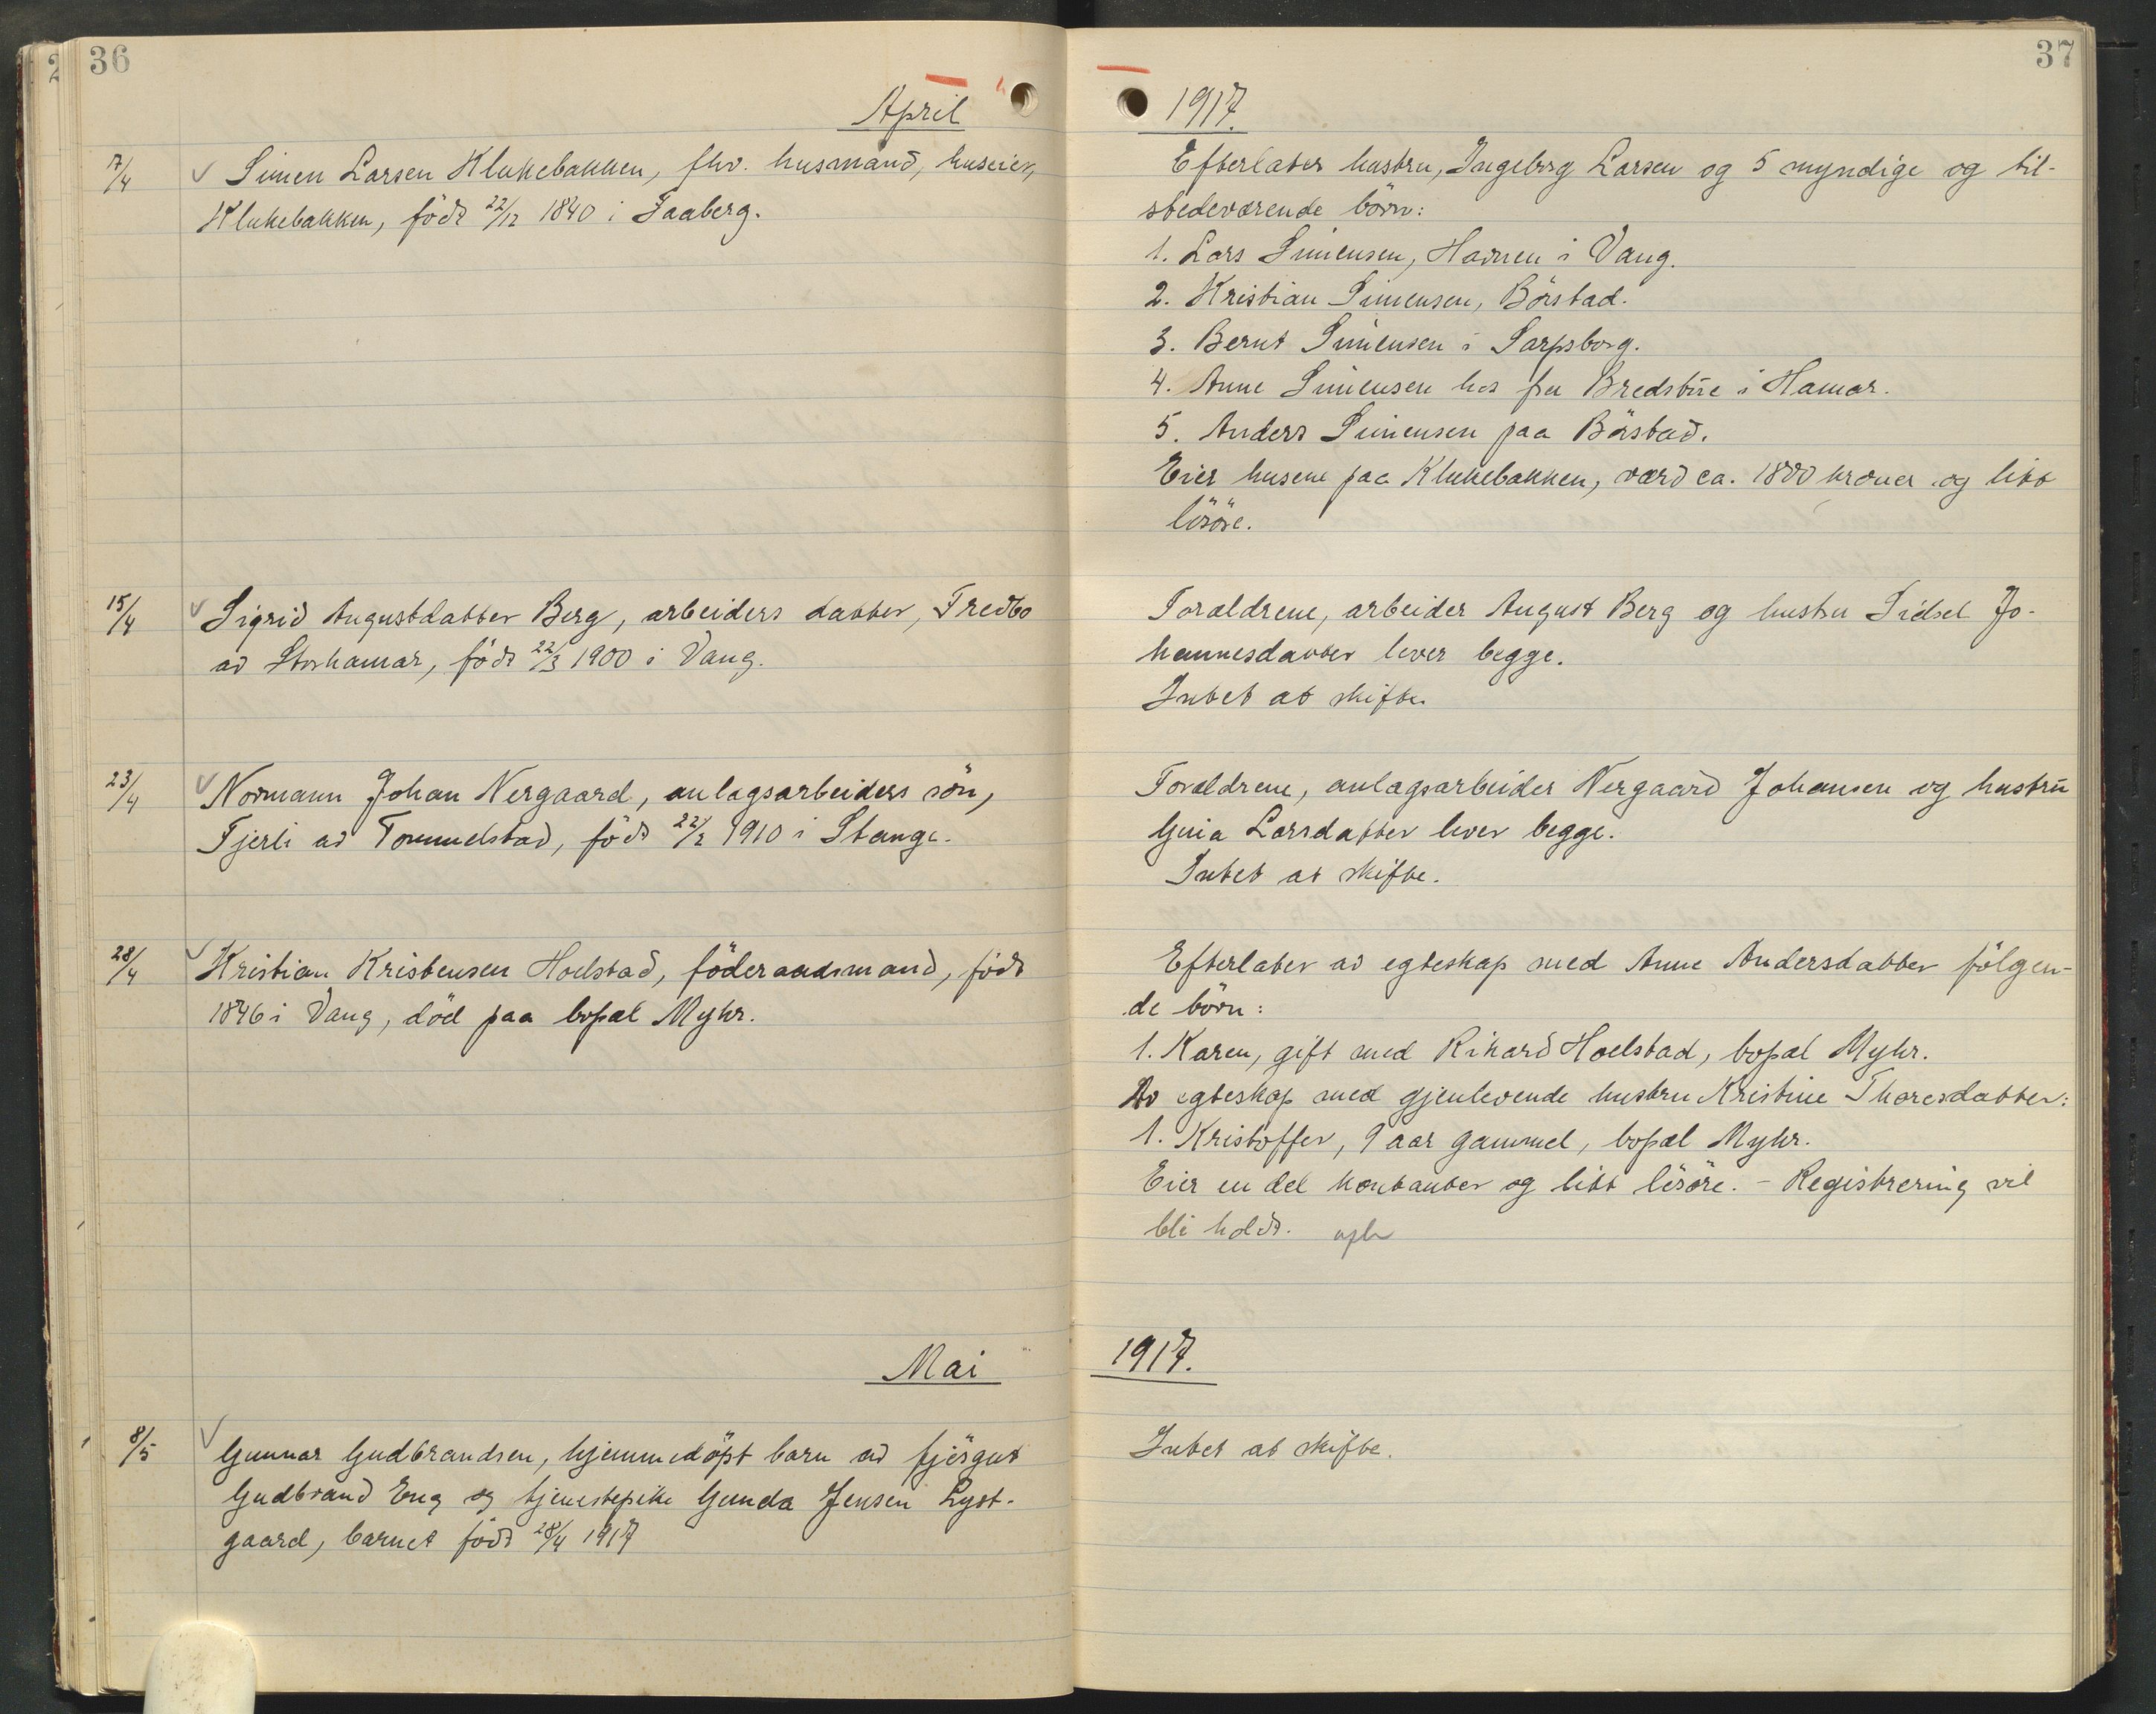 36
April
7/4 Simen Larsen Klukebakken, fhv. husmand, huseier,
Klukebakken, född 22/12 1840 i Faaberg.
15/4 Sigrid Augustdatter Berg, arbeiders datter, Fredbo
av Storhamar, född 22/3 1900 i Vang.
23/4 Normann Johan Nergaard, anlagsarbeiders sön,
Fjerli av Tommelstad, född 22/2 1910 i Stange.
28/4 Kristian Kristensen Hoelstad, föderaadsmand, född
1846 i Vang, död paa bopæl Myhr.
Mai
8/5 Gunnar Gudbrandsen, hjemmedöpt barn av fjösgut
Gudbrand Eng og tjenestepike Gunda Jensen Lyst-
gaard, barnet född 28/4 1917
37
1917.
Efterlater hustru, Ingeborg Larsen og 5 myndige og til-
stedeværende börn:
1. Lars Simensen, Havnen i Vang.
2. Kristian Simensen, Börstad.
3. Bernt Simensen i Sarpsborg.
4. Anne Simensen hos fru Bredstue i Hamar.
5. Anders Simensen paa Börstad.
Eier husene paa Klukebakken, værd ca. 1800 kroner og litt
lösöre.
Forældrene, arbeider August Berg og hustru Sidsel Jo-
hannesdatter lever begge.
Intet at skifte.
Forældrene, anlagsarbeider Nergaard Johansen og hustru
Guia Larsdatter lever begge.
Intet at skifte.
Efterlater av egteskap med Anne Andersdatter fölgen-
de börn:
1. Karen, gift med Rikard Hoelstad, bopæl Myhr.
Av egteskap med gjenlevende hustru Kristine Thoresdatter:
1. Kristoffer, 9 aar gammel, bopæl Myhr.
Eier en del kontanter og litt lösöre. - Registrering vil
bli holdt.
1917.
Intet at skifte.